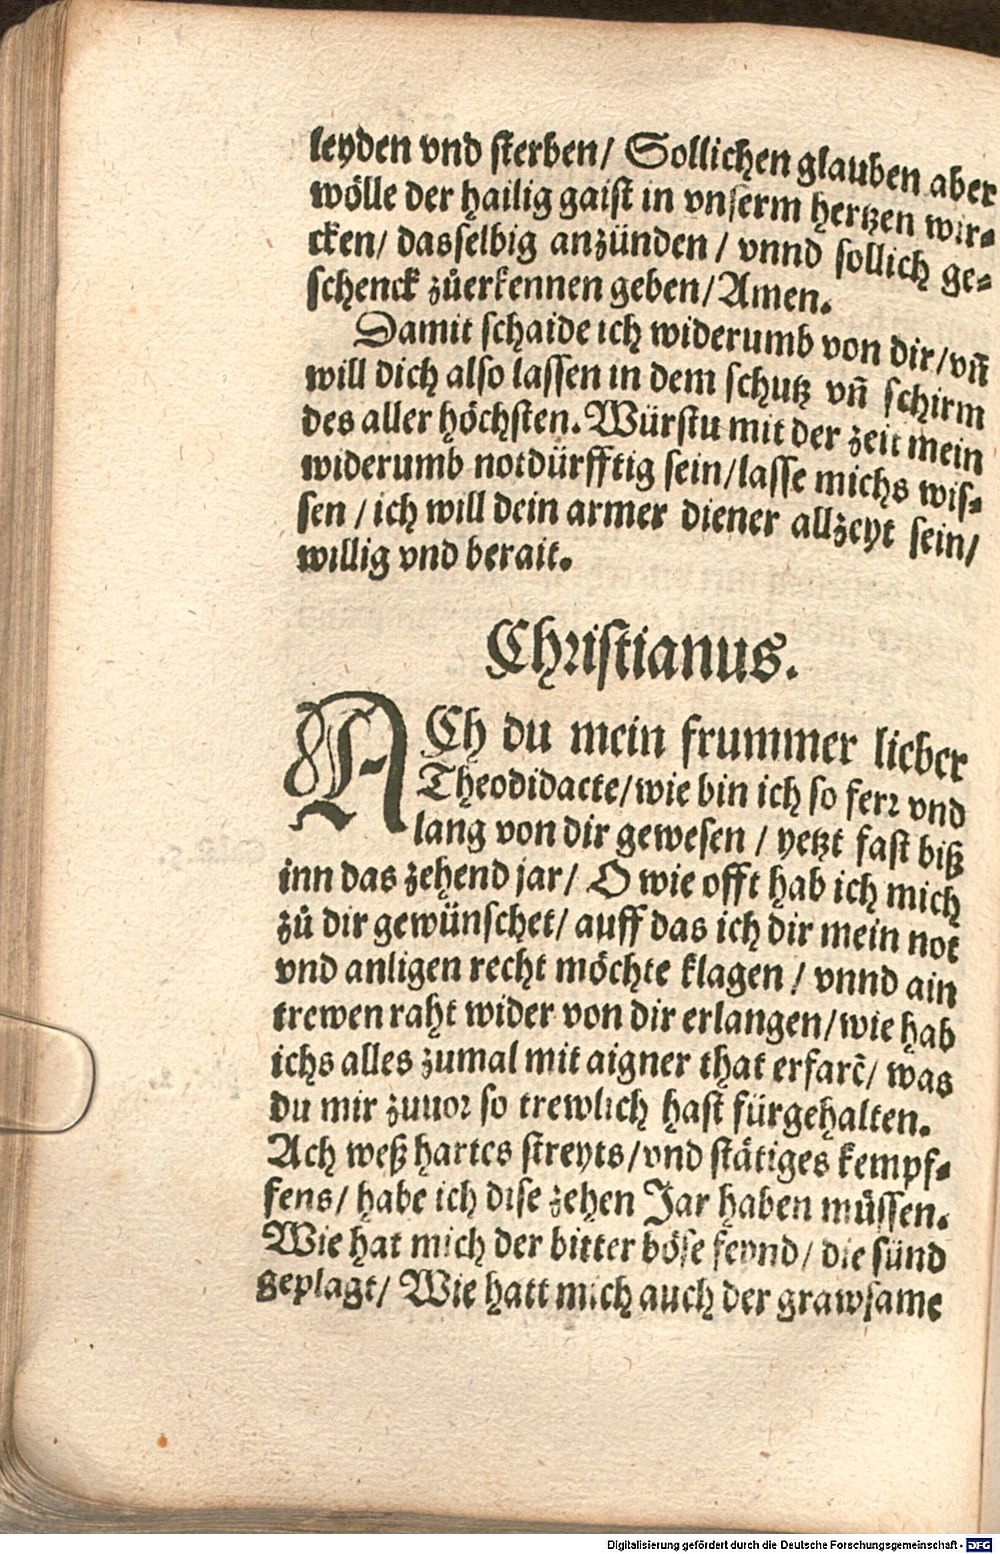 leyden vnd sterben/ Sollichen glauben aber
wölle der hailig gaist in vnserm hertzen wir⸗
cken/ dasselbig anzünden / vnnd sollich ge⸗
schenck zůerkennen geben/ Amen.
Damit schaide ich widerumb von dir/ vñ
will dich also lassen in dem schutz vñ schirm
des aller höchsten. Würstu mit der zeit mein
widerumb notdürfftig sein/ lasse michs wis⸗
sen / ich will dein armer diener allzeyt sein/
willig vnd berait.
Christianus.
ACh du mein frummer lieber
Theodidacte/ wie bin ich so ferr vnd
lang von dir gewesen / yetzt fast biß
inn das zehend jar/ O wie offt hab ich mich
zů dir gewünschet/ auff das ich dir mein not
vnd anligen recht möchte klagen / vnnd ain
trewen raht wider von dir erlangen/ wie hab
ichs alles zumal mit aigner that erfarẽ/ was
du mir zuuor so trewlich hast fürgehalten.
Ach weß hartes streyts/ vnd stätiges kempf⸗
fens/ habe ich dise zehen Jar haben müssen.
Wie hat mich der bitter böse feynd/ die sünd
geplagt/ Wie hatt mich auch der grawsame
Digitalisierung gefördert durch die Deutsche Forschungsgemeinschaft - DFG